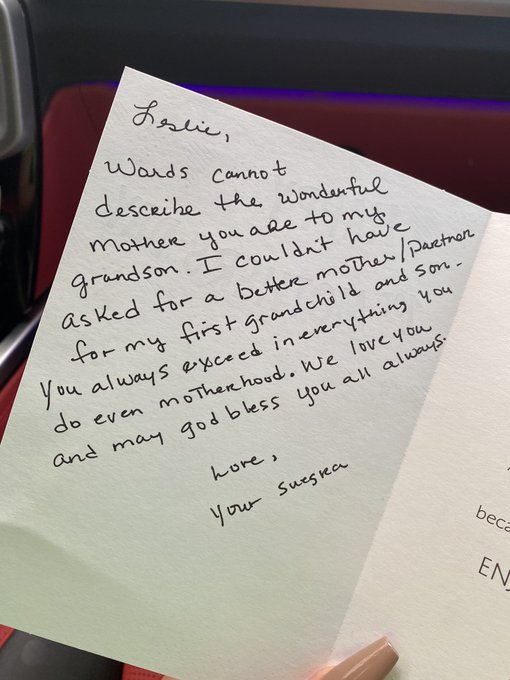 Leslie,
Words cannot
describe the wonderful
mother you are to my
grandson. I couldn't have
asked for a better mother/partner
for my first grandchild and son.
You always exceed in everything you
do even motherhood. We love you
and may god bless you all always.
Love,
Your suegra
beca
EN